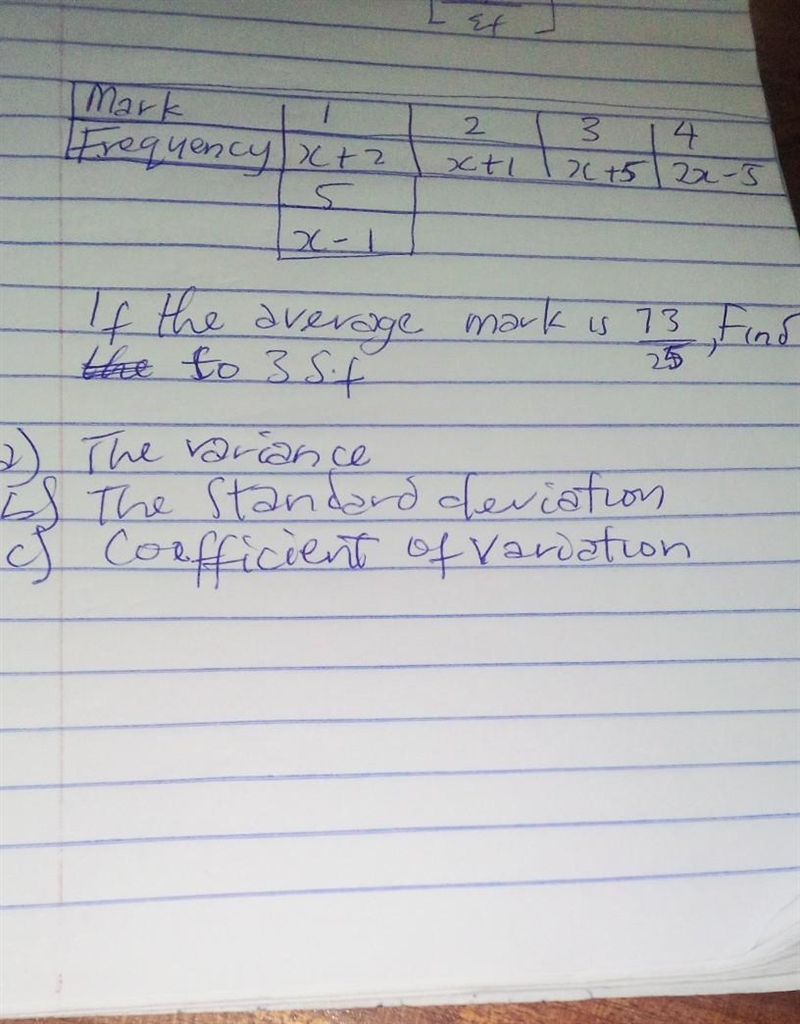 Σf
Mark 1 2 3 4
Frequency x+2 x+1 x+5 2x-5
5
x-1
If the average mark is 73/25, Find
the to 3 S.f
a) The variance
b) The Standard deviation
c) Coefficient of Variation